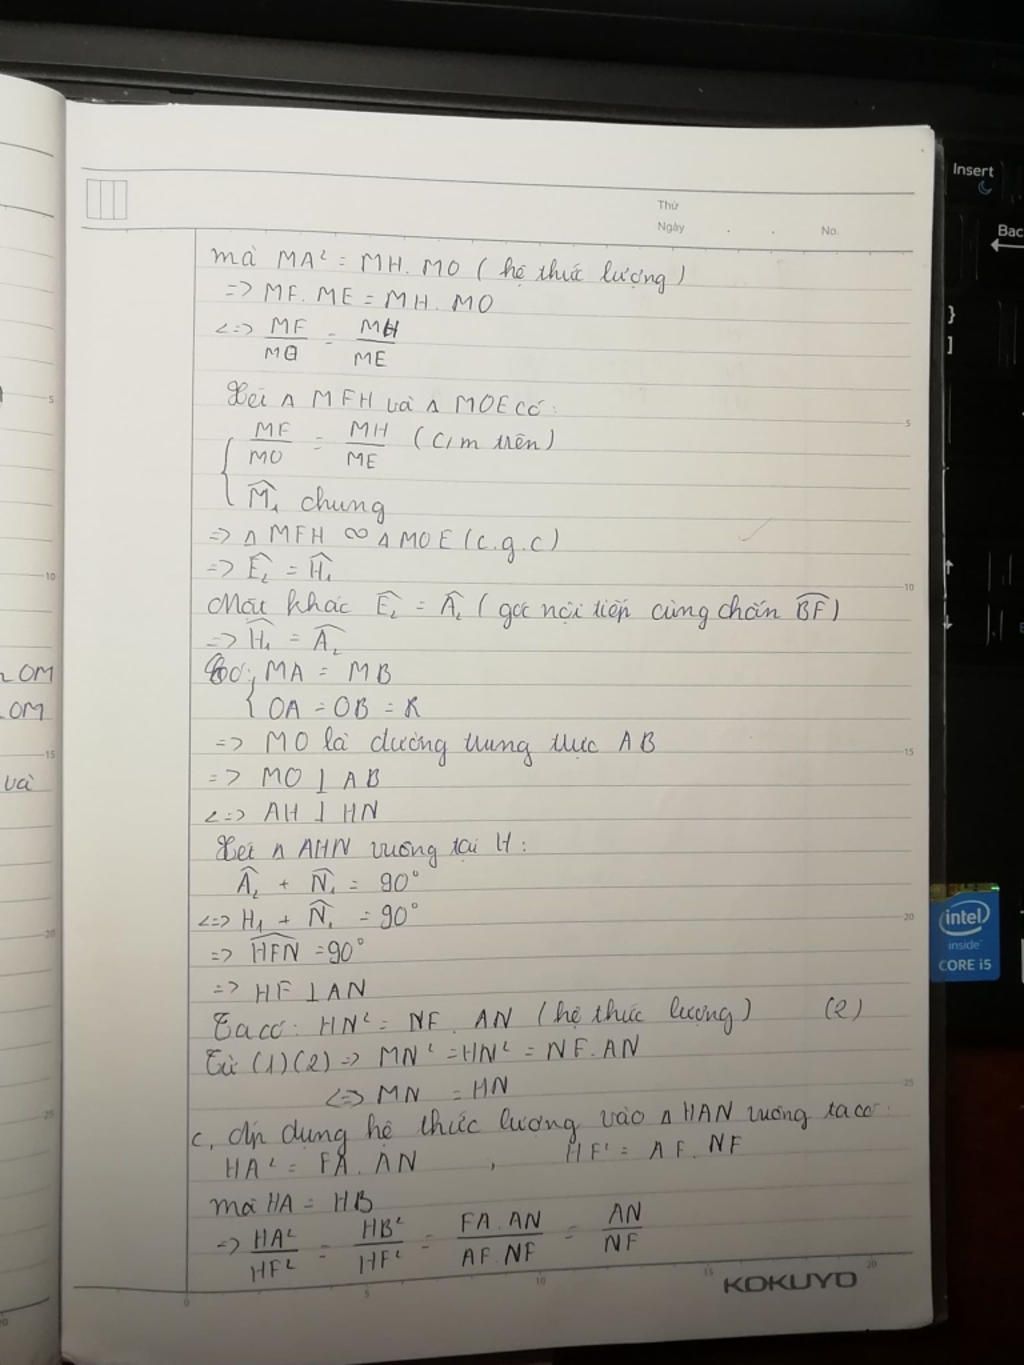 Insert
Bac
Thứ
Ngày . . No.
mà MA² = MH. MO ( hệ thức lượng )
=> MF. ME = MH. MO
<=> MF/MO = MH/ME
Xét Δ MFH và Δ MOE có:
MF/MO = MH/ME ( c/m trên )
M̂₁ chung
=> Δ MFH ∞ Δ MOE ( c.g.c )
=> Ê₂ = Ĥ₁
Mặt khác Ê₂ = Â₂ ( góc nội tiếp cùng chắn BF )
=> Ĥ₁ = Â₂
Có: MA = MB
OA = OB = R
=> MO là đường trung trực AB
=> MO ⊥ AB
<=> AH ⊥ HN
Xét Δ AHN vuông tại H:
Â₂ + N̂₁ = 90°
<=> H₁ + N̂₁ = 90°
=> HFN = 90°
=> HF ⊥ AN
Ta có: HN² = NF. AN ( hệ thức lượng ) (2)
Từ (1)(2) => MN² = HN² = NF. AN
<=> MN = HN
c, Áp dụng hệ thức lượng vào Δ HAN vuông ta có:
HA² = FA. AN , HF² = AF. NF
mà HA = HB
=> HA²/HF² = HB²/HF² = FA. AN/AF. NF = AN/NF
KOKUYO
OM
OM
và
5
10
15
20
25
5
10
15
20
25
0
5
10
15
20
intel
inside
CORE i5